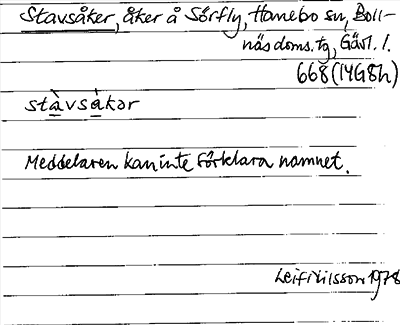 Stavsåker, åker å Sörfly, Hanebo sn, Boll-
näs doms. tg, Gävl. l.
668 (14G8h)
stàvsàkər
Meddelaren kan inte förklara namnet.
Leif Nilsson 1978